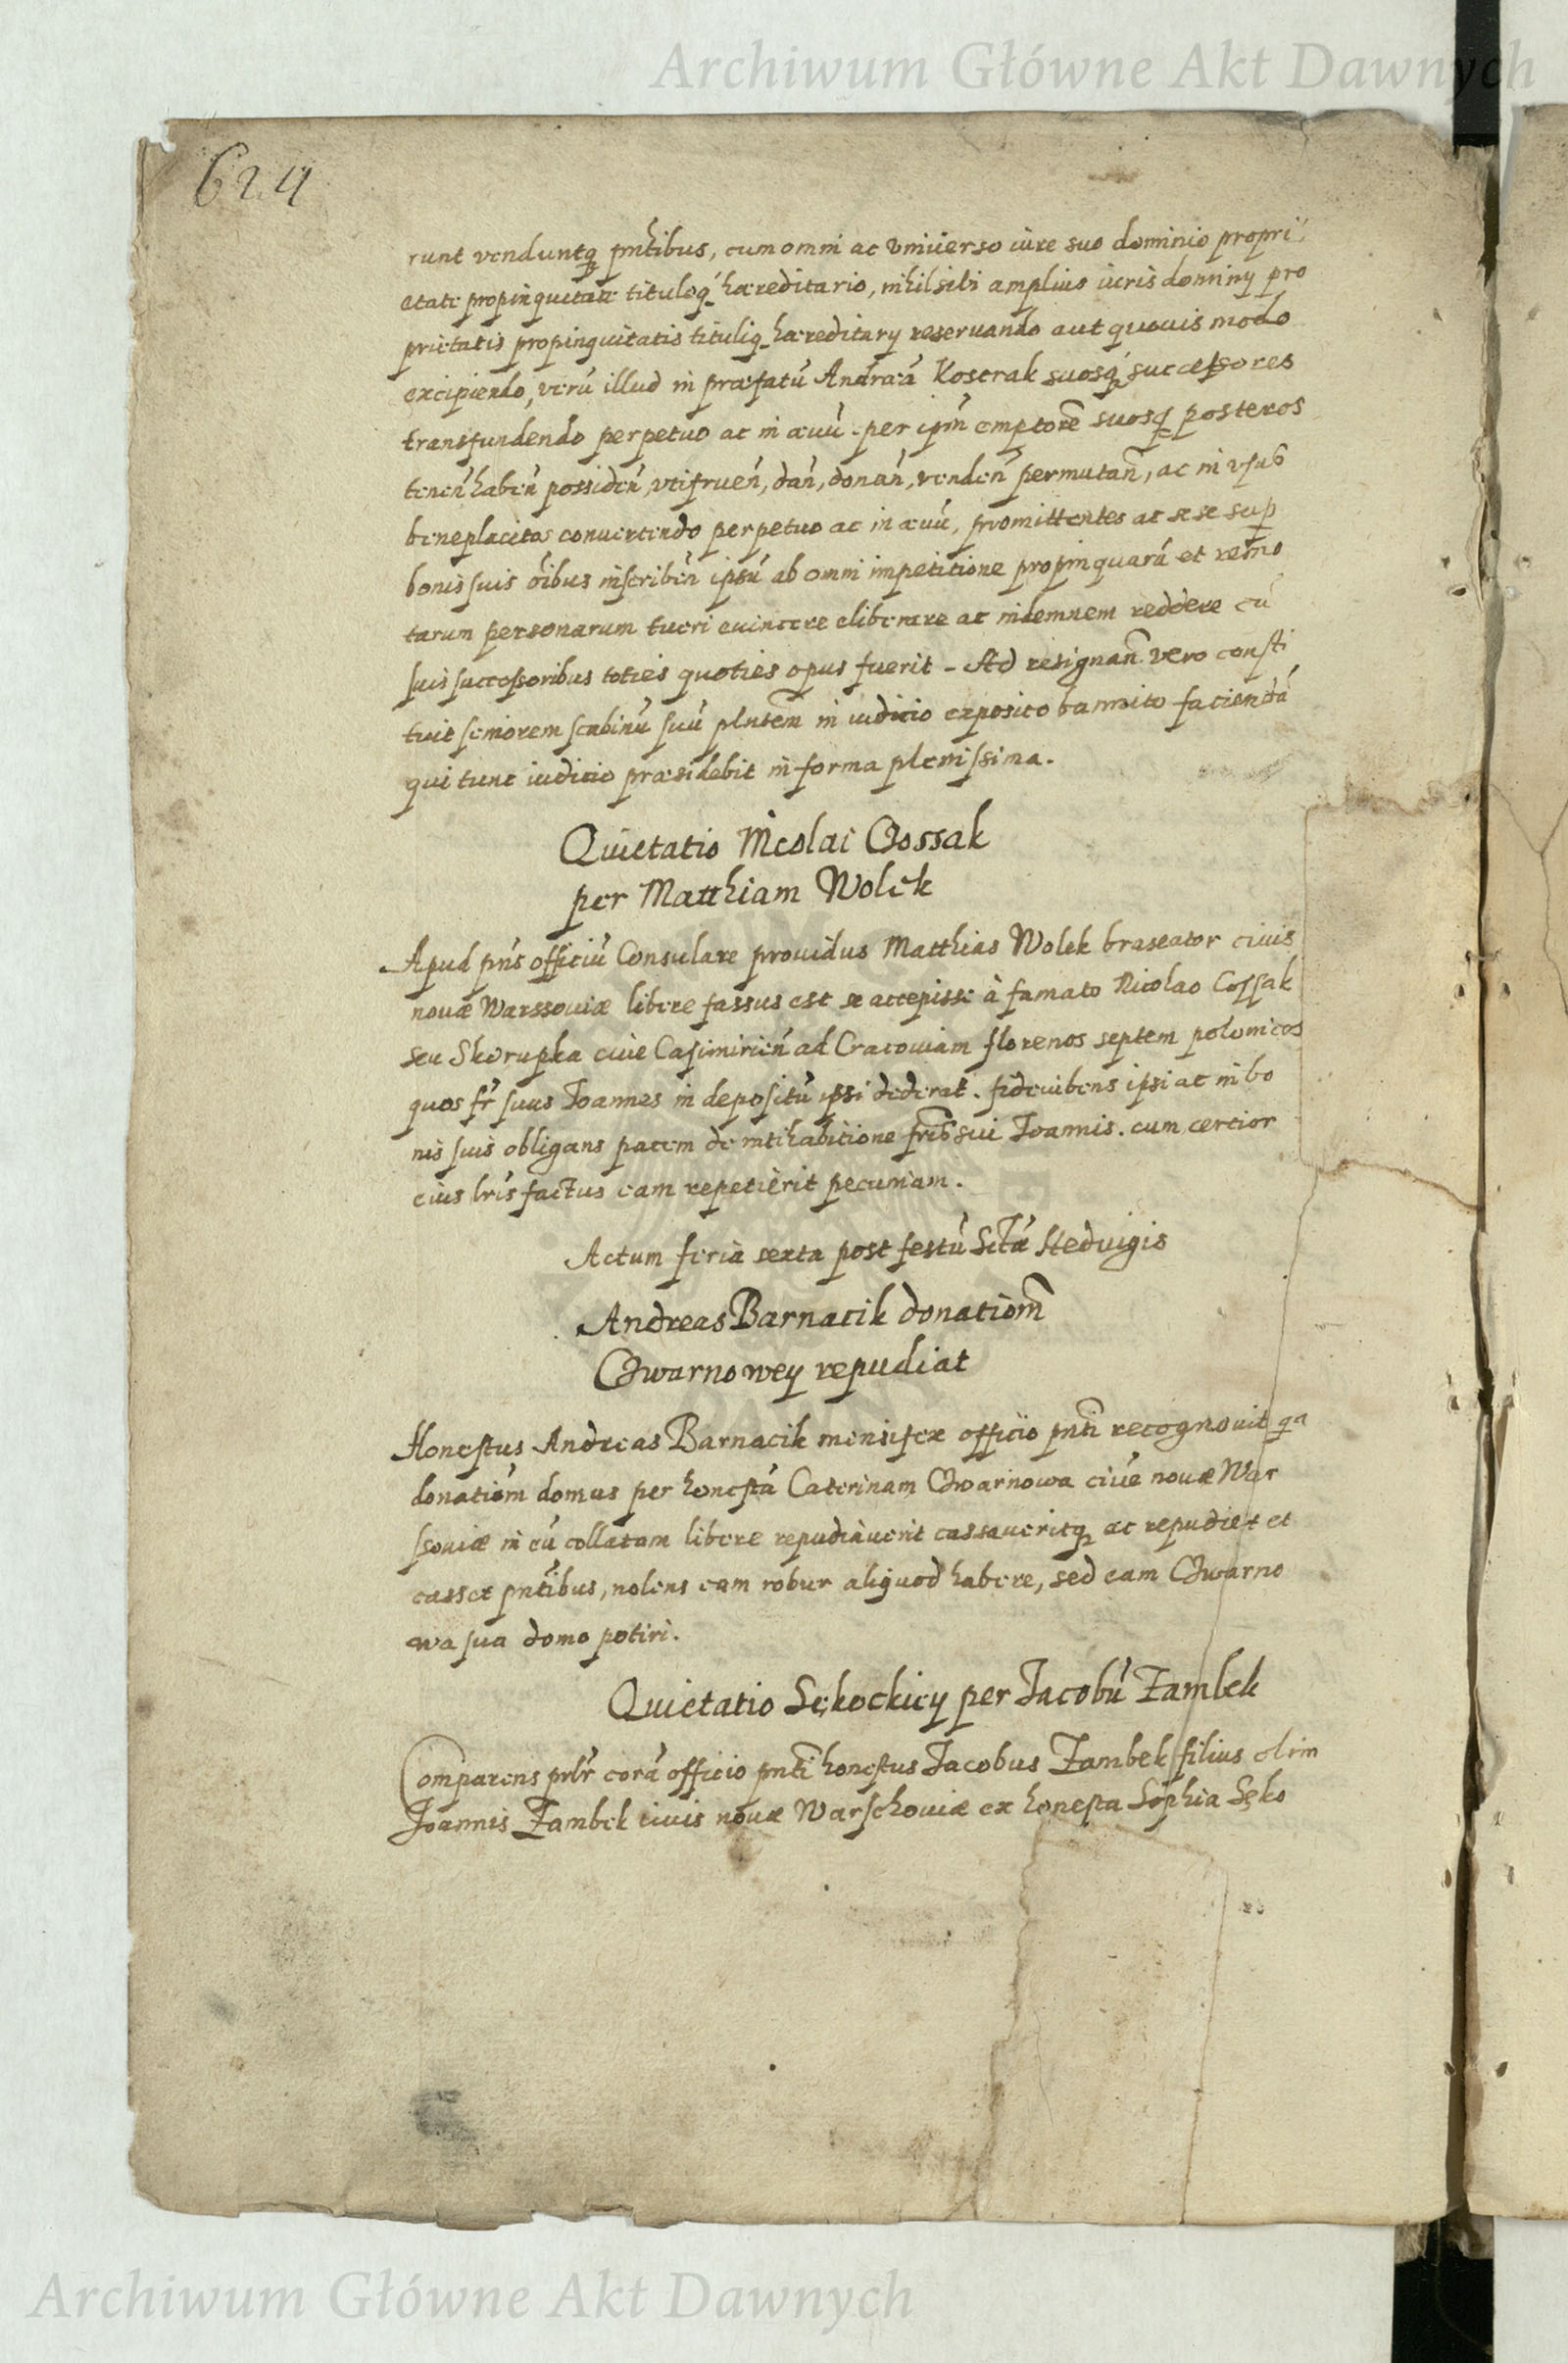 Archiwum Główne Akt Dawnych
624
runt venduntq̄ pn̄tibus, cum omni ac vniuerso iure suo dominio propri
etate propinquitate tituloq̄ hæreditario, nihil sibi amplius iuris dominij pro
prietatis propinquitatis tituliq̄ hæreditarij reseruando aut quouis modo
excipiendo, verū illud in præfatū Andræā Koserak suosq̄ successores
transfundendo perpetuo ac in æuū per ipm̄ emptorē suosq̄ posteros
tenen̄ haben̄ possiden̄ vtifruen̄, dan̄, donan̄, venden̄ permutan̄, ac in vsus
beneplacitos conuertendo perpetuo ac in æuū, promittentes ac sese sup
bonis suis oībus inscriben̄ ipsū ab omni impetitione propinquarā et remo
tarum personarum tueri euincere eliberare ac indemnem reddere cū
suis successoribus toties quoties opus fuerit - Ad resignan̄ vero consti
tuit seniorem scabinū suū plntem̄ in iudicio exposito bannito faciendā
qui tunc iudicio præsidebit in forma plenissima.
Quietatio Nicolai Cossak
per Matthiam Wolek
Apud pn̄s officiū Consulare prouidus Matthias Wolek braseator ciuis
nouæ Warssouiæ libere fassus est se accepisse à famato Nicolao Cossak
seu Skorupka ciue Casimirien̄ ad Cracouiam florenos septem polonicos
quos fr̄ suus Joannes in depositū ipsi dederat. fideiubens ipsi ac in bo
nis suis obligans pacem de ratihabitione fr̄is sui Joannis. cum certior
eius lr̄is factus eam repetierit pecuniam.
Actum feria sexta post festū Sctæ Heduigis
Andreas Barnacik donatiom̄
Chwarnowey repudiat
Honestus Andreas Barnacik mensifex officio pn̄ti recognouit qa
donatiom̄ domus per honestā Caterinam Chwarnowa ciuē nouæ War
ssouiæ in eū collatam libere repudiauerit cassaueritq̄ ac repudiet et
casset pn̄tibus, nolens eam robur aliquod habere, sed eam Chwarno
wa sua domo potiri.
Quietatio Sękockiey per Jacobū Zambek
Comparens prlr̄ corā officio pn̄ti honestus Jacobus Zambek filius olim
Joannis Zambek ciuis nouæ Warschouiæ ex honesta Sophia Sęko
Archiwum Główne Akt Dawnych